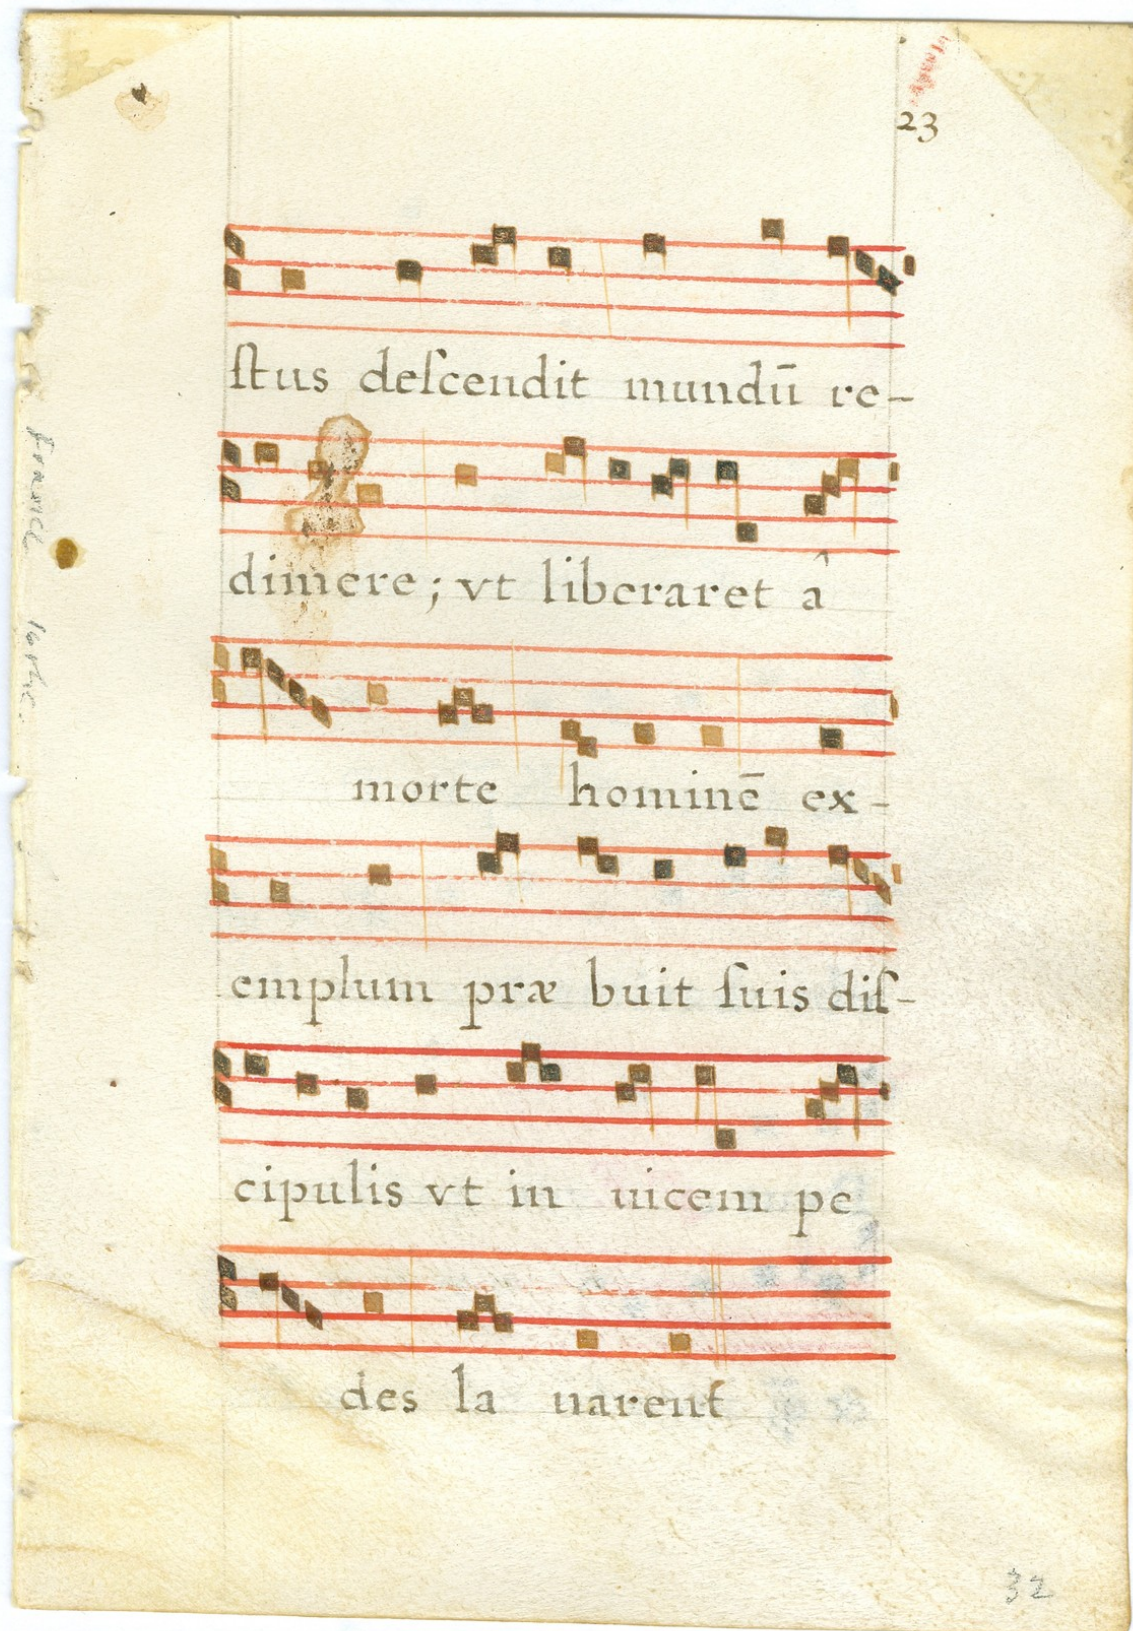 23
ſtus deſcendit mundū re-
dimere; vt liberaret â
morte hominē ex-
emplum præ buit ſuis diſ-
cipulis vt in uicem pe
des la uarent
France
32